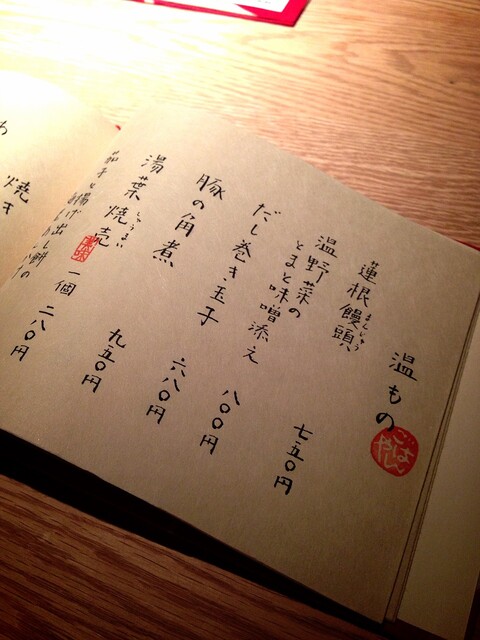 温もの
ごはんや
蓮根饅頭 七五〇円
まんじゅう
温野菜の
とまと味噌添え 八〇〇円
だし巻き玉子 六八〇円
豚の角煮 九五〇円
湯葉焼売 一個 二八〇円
しゅうまい
茄子と揚げ出し餅の
焼き